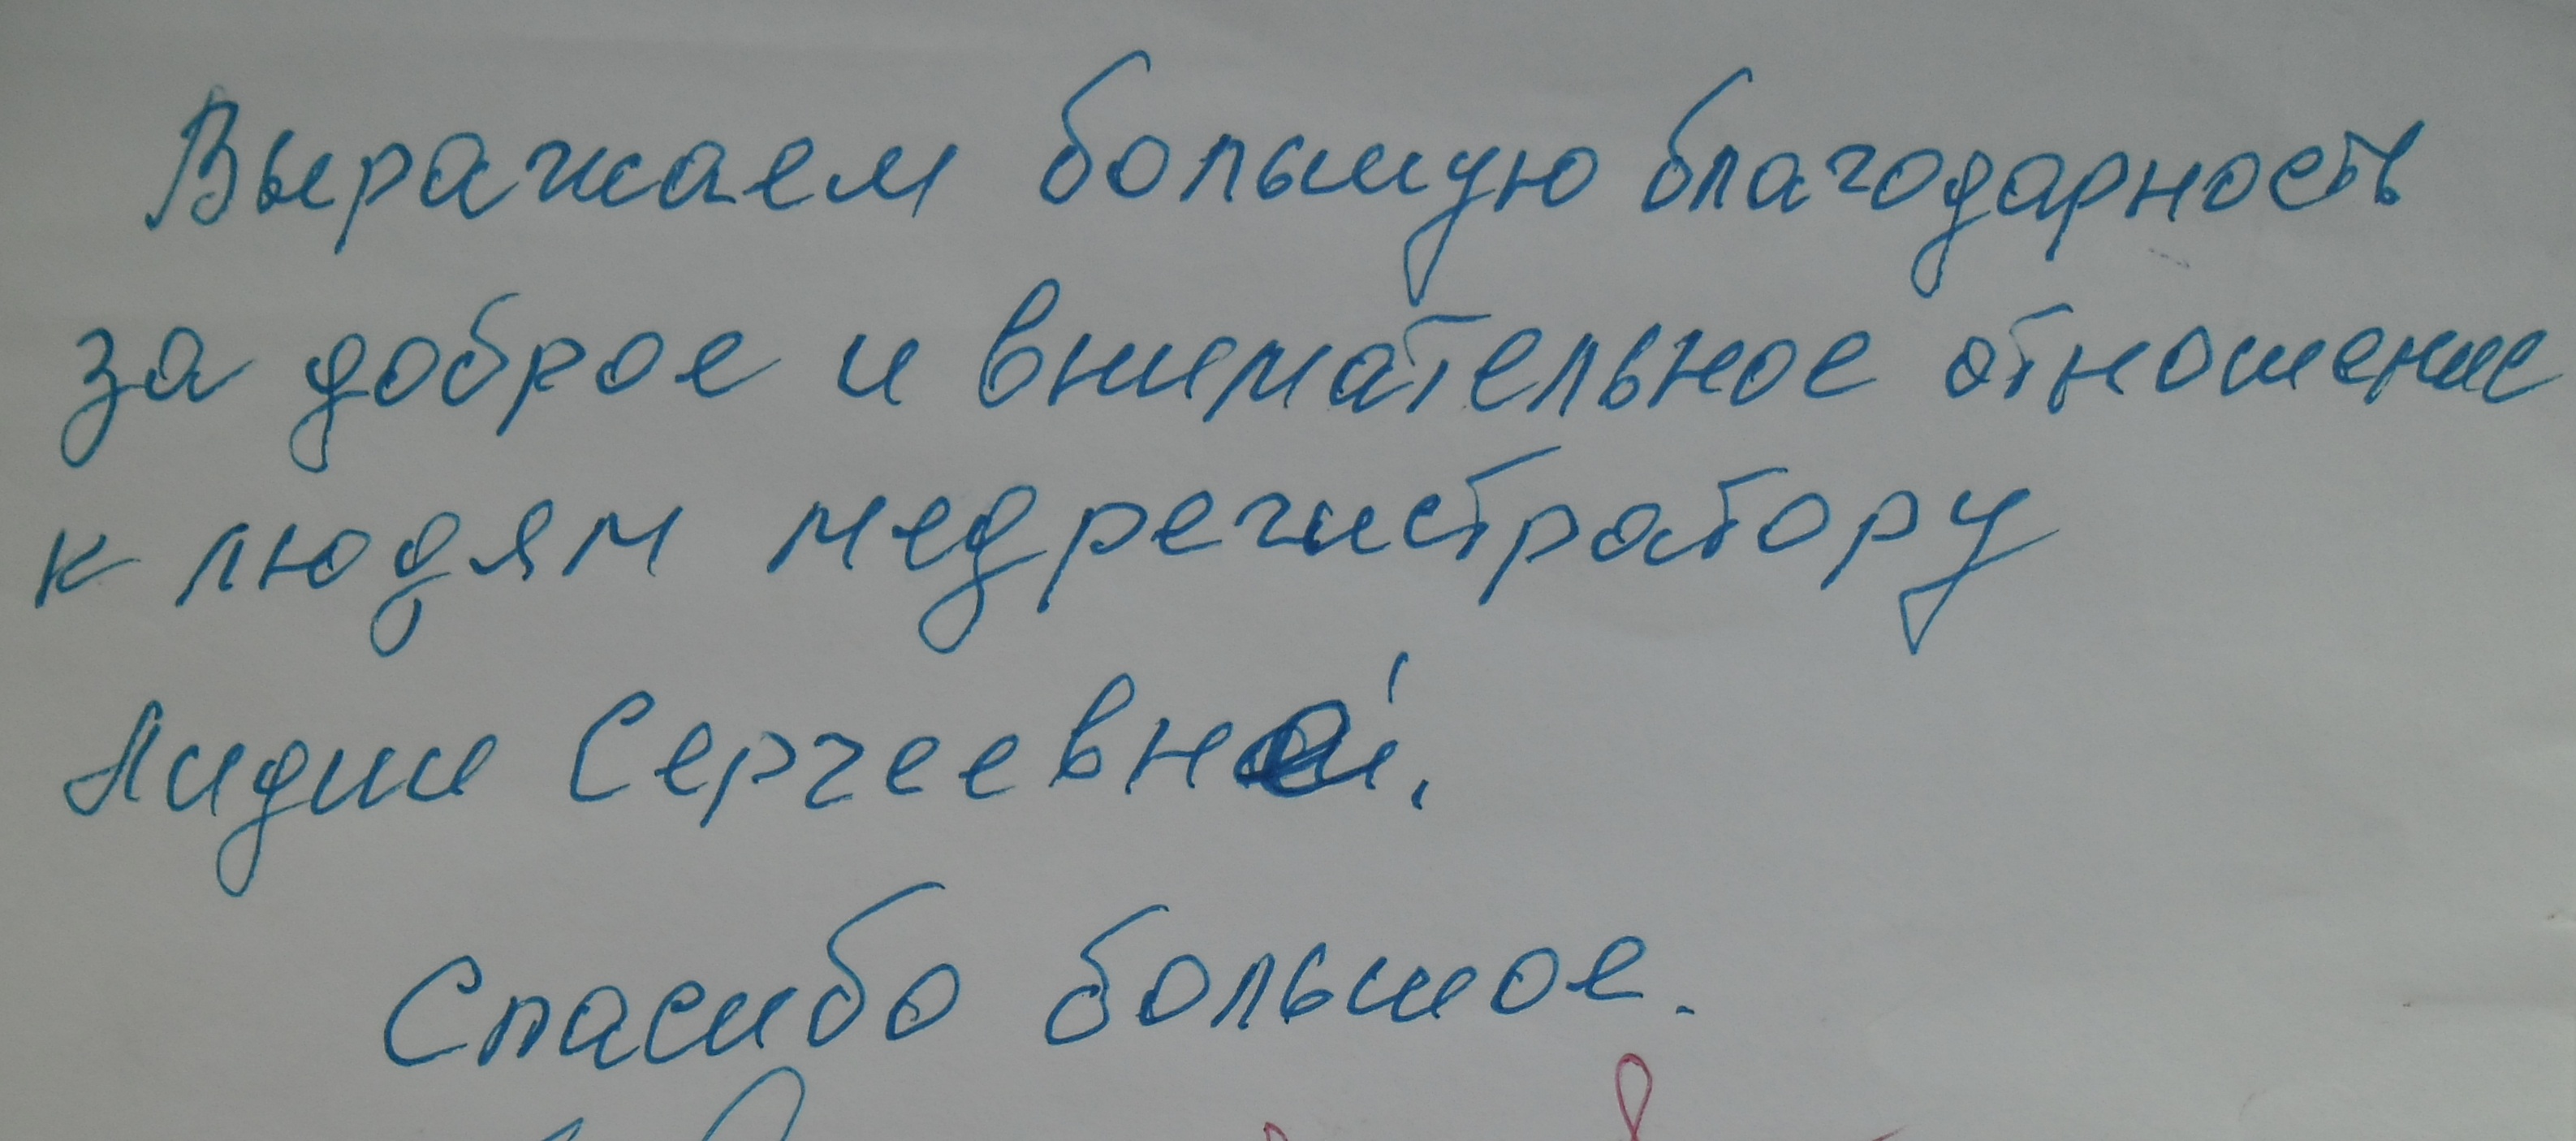 Выражаем большую благодарность
за доброе и внимательное отношение
к людям медрегистратору
Лидии Сергеевной.
Спасибо большое.